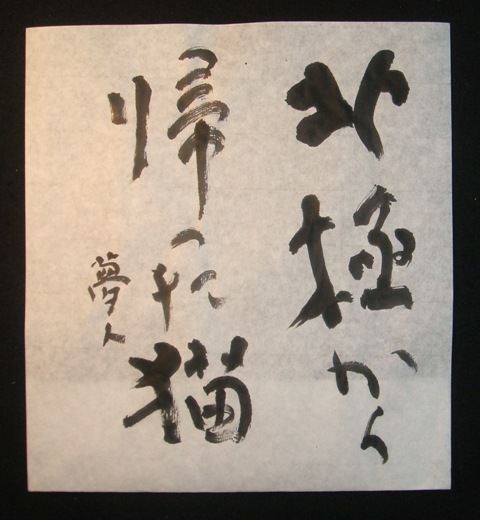 北極から
帰った猫
夢人